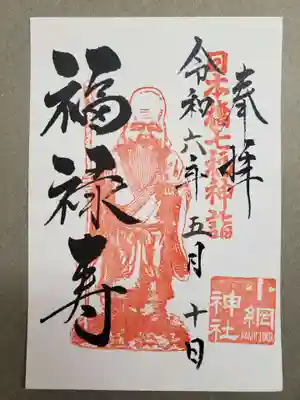 奉拝
日本橋七福神詣
令和六年五月十日
福禄寿
小網
神社